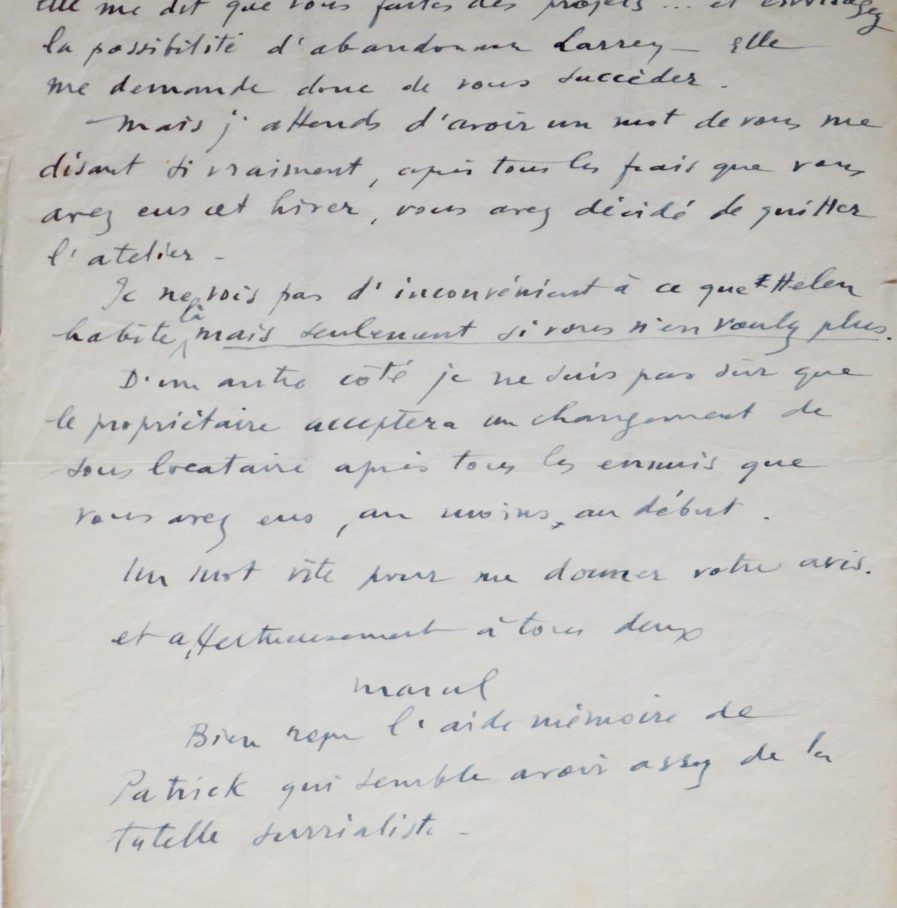 elle me dit que vous faites des projets... et envisagez
la possibilité d'abandonner Larrey – elle
me demande donc de vous succèder.
– Mais j'attends d'avoir un mot de vous me
disant si vraiment, après tous les frais que vous
avez eus cet hiver, vous avez décidé de quitter
l'atelier –
Je ne vois pas d'inconvénient à ce que Helen
habite là mais seulement si vous n'en voulez plus.
D'un autre côté je ne suis pas sûr que
le propriétaire acceptera un changement de
sous locataire après tous les ennuis que
vous avez eus, au moins, au début.
Un mot vite pour me donner votre avis.
et affectueusement à tous deux
Marcel
Bien reçu l'aide mémoire de
Patrick qui semble avoir assez de la
tutelle surréaliste –